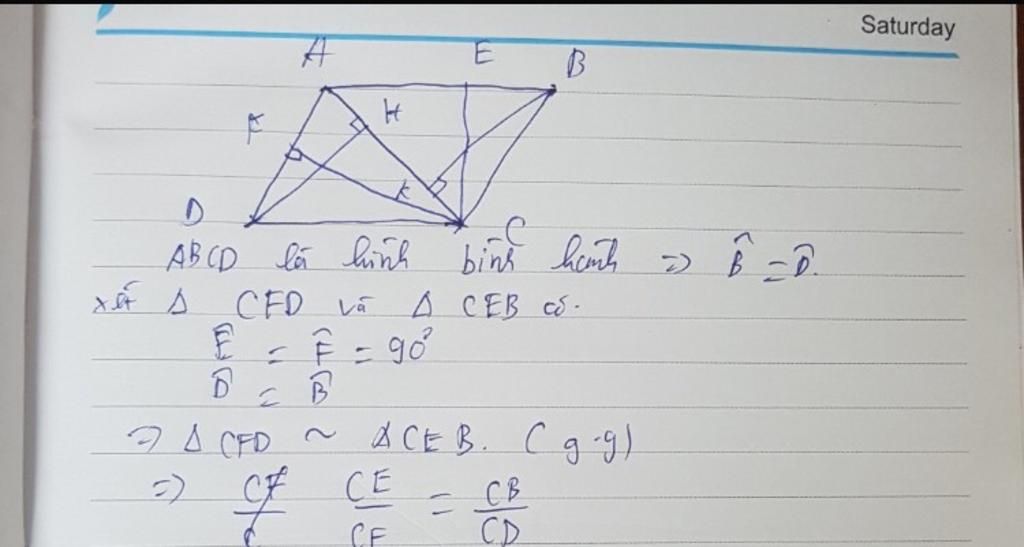 Saturday
A E B
F H
K
D C
ABCD là hình bình hành => B̂ = D̂.
xét Δ CFD và Δ CEB có.
Ê = F̂ = 90°
D̂ = B̂
=> Δ CFD ~ Δ CEB. (g.g)
=> CF/C CE/CF = CB/CD